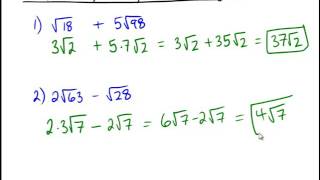 1) √18 + 5√98
3√2 + 5·7√2 = 3√2 + 35√2 = 37√2
2) 2√63 − √28
2·3√7 − 2√7 = 6√7 − 2√7 = 4√7